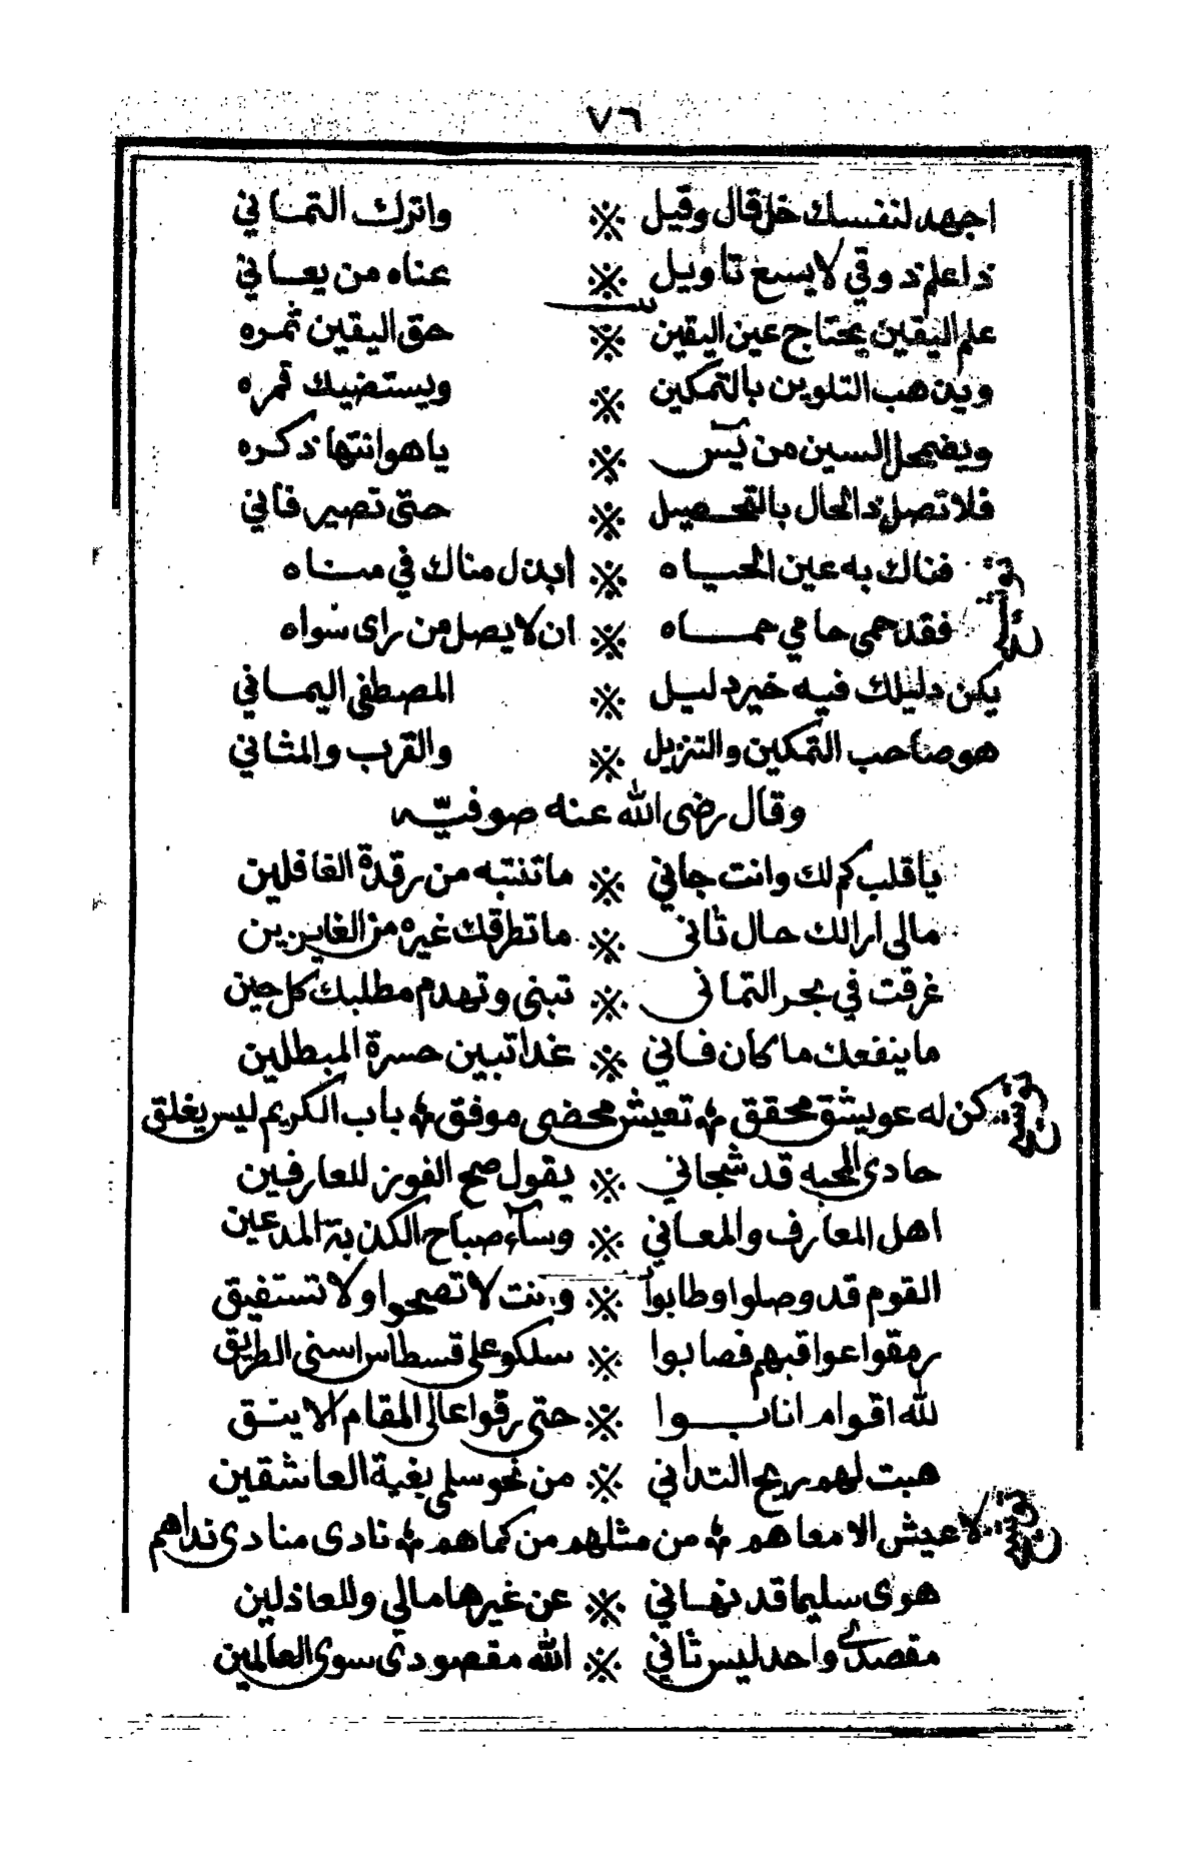 ٧٦
اجهد لنفسك خل قال وقيل ※ واترك التماني
ذا علم ذوقي لا يسع تاويل ※ عناه من يعاني
علم اليقين يحتاج عين اليقين ※ حق اليقين ثمره
ويذهب التلوين بالتمكين ※ ويستضيك قمره
ويضمحل السين من يٓس ※ ياهو انتها ذكره
فلا تصل ذا الحال بالتحصيل ※ حتى تصير فاني
توشيح
فناك به عين الحياه ※ أبذل مناك في مناه
فقد حمى حامي حماه ※ ان لا يصل من راى سواه
يكن دليلك فيه خير دليل ※ المصطفى اليماني
هو صاحب التمكين والتنزيل ※ والقرب والمثاني
وقال رضى الله عنه صوفيّه
ياقلب كم لك وانت جاني ※ ماتنتبه من رقدة الغافلين
مالى ارالك حال ثانى ※ ماتطرقك غيره من الغايرين
غرقت في بحر التمانى ※ تبنى وتهدم مطلبك كل حين
ماينفعك ماكان فاني ※ غدا تبين حسرة المبطلين
توشيح
كن له عويشق محقق ※ تعيش محضى موفق ※ باب الكريم ليس يغلق
حادى المحبه قد شجاني ※ يقول صح الفوز للعارفين
اهل المعارف والمعاني ※ وسآء صباح الكذبة المدعين
القوم قد وصلوا وطابوا ※ وانت لا تصحوا ولا تستفيق
رمقوا عواقبهم فصابوا ※ سلكو على قسطاس اسنى الطريق
لله اقوام انابوا ※ حتى رقوا عالى المقام الانيق
هبت لهم ريح التداني ※ من نحو سلمى بغية العاشقين
توشيح
لا عيش الا معاهم ※ من مثلهم من كماهم ※ نادى منادى نداهم
هوى سليما قد نهاني ※ عن غيرها مالي وللعاذلين
مقصدى واحد ليس ثاني ※ الله مقصودى سوى العالمين